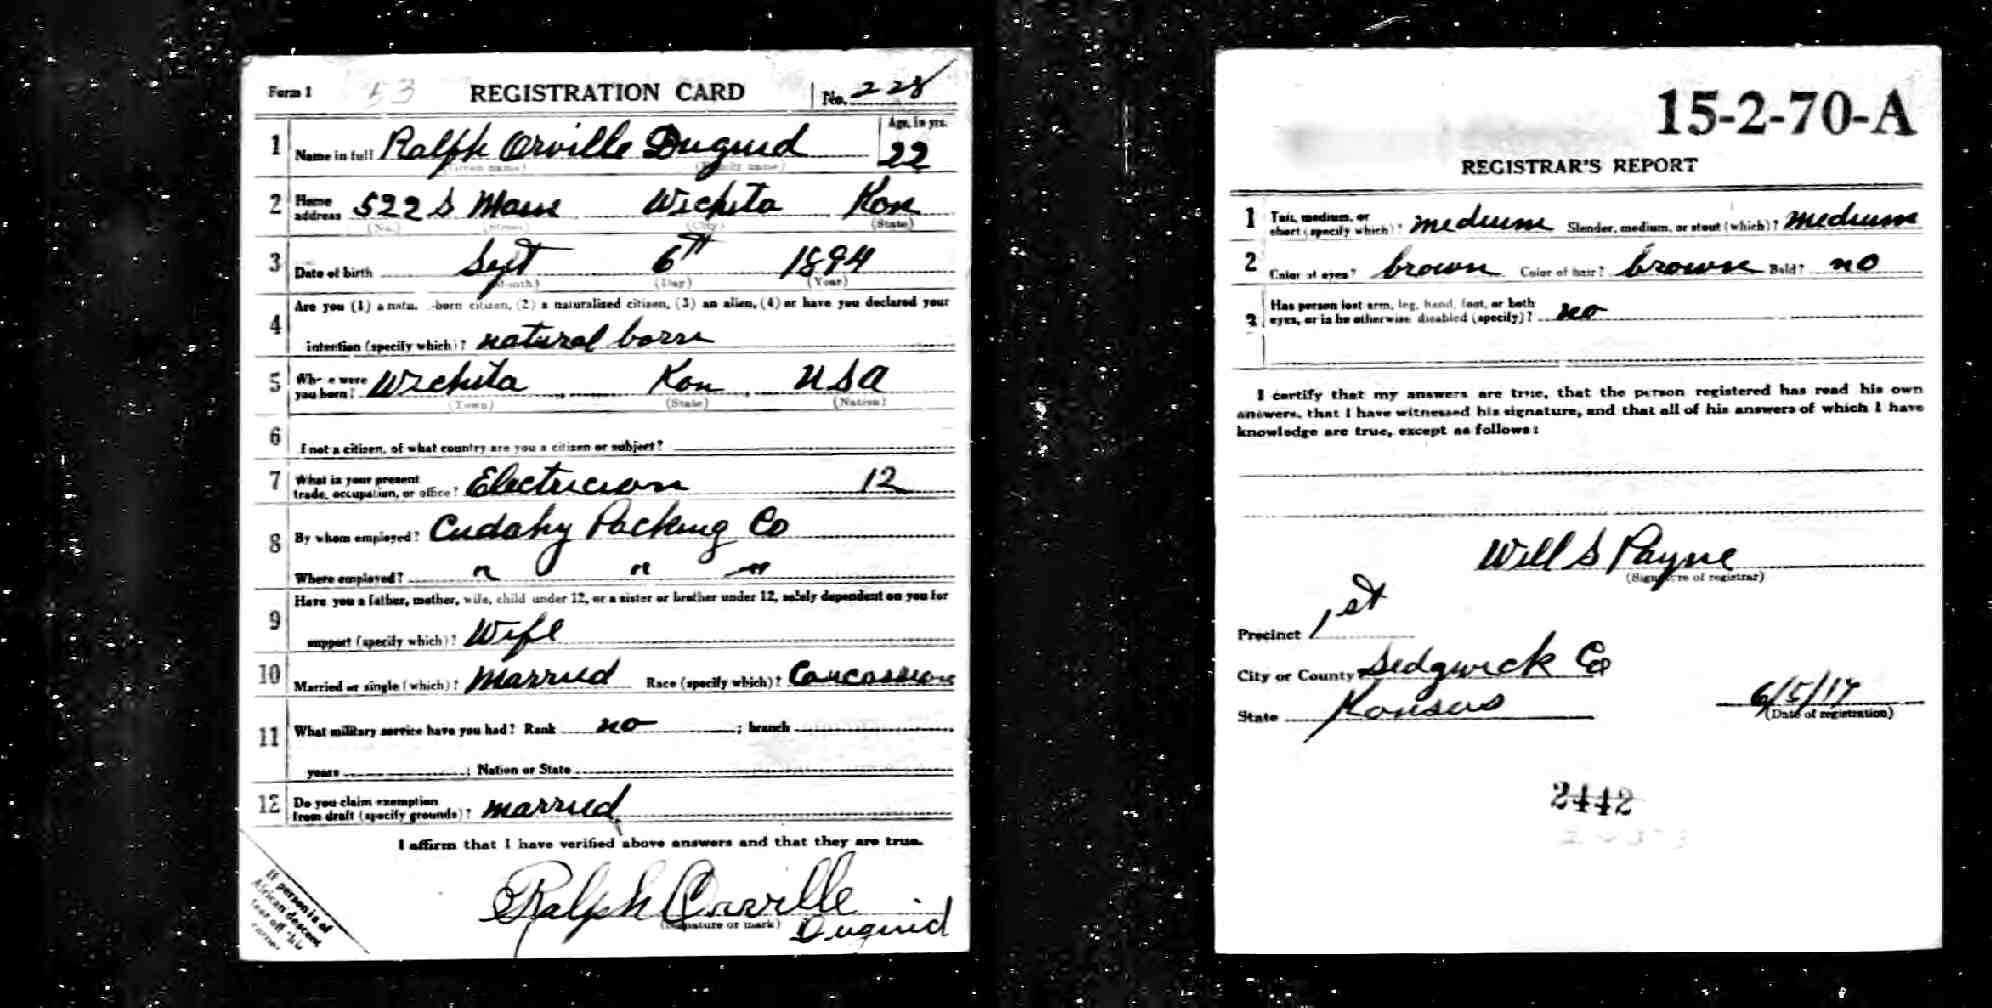 Form 1 53 REGISTRATION CARD No. 228
1 Name in full Ralph Orville Duguid Age, in yrs. 22
(Given name) (Family name)
2 Home address 522 S Main Wichita Kan
(No.) (Street) (City) (State)
3 Date of birth Sept 6th 1894
(Month) (Day) (Year)
4 Are you (1) a natu. -born citizen, (2) a naturalized citizen, (3) an alien, (4) or have you declared your
intention (specify which)? natural born
5 Where were you born? Wichita Kan USA
(Town) (State) (Nation)
6 I not a citizen, of what country are you a citizen or subject?
7 What is your present trade, occupation, or office? Electrician 12
8 By whom employed? Cudahy Packing Co
Where employed? " " "
9 Have you a father, mother, wife, child under 12, or a sister or brother under 12, solely dependent on you for
support (specify which)? Wife
10 Married or single (which)? Married Race (specify which)? Caucassian
11 What military service have you had? Rank no ; branch
years ; Nation or State
12 Do you claim exemption from draft (specify grounds)? married
I affirm that I have verified above answers and that they are true.
Ralph Orville
(Signature or mark) Duguid
If person is of
African descent
tear off this
corner
15-2-70-A
REGISTRAR'S REPORT
1 Tall, medium, or short (specify which)? medium Slender, medium, or stout (which)? medium
2 Color of eyes? brown Color of hair? brown Bald? no
3 Has person lost arm, leg, hand, foot, or both eyes, or is he otherwise disabled (specify)? no
I certify that my answers are true, that the person registered has read his own
answers, that I have witnessed his signature, and that all of his answers of which I have
knowledge are true, except as follows:
Will S Payne
(Signature of registrar)
Precinct 1st
City or County Sedgwick Co
State Kansas 6/5/17
(Date of registration)
2442